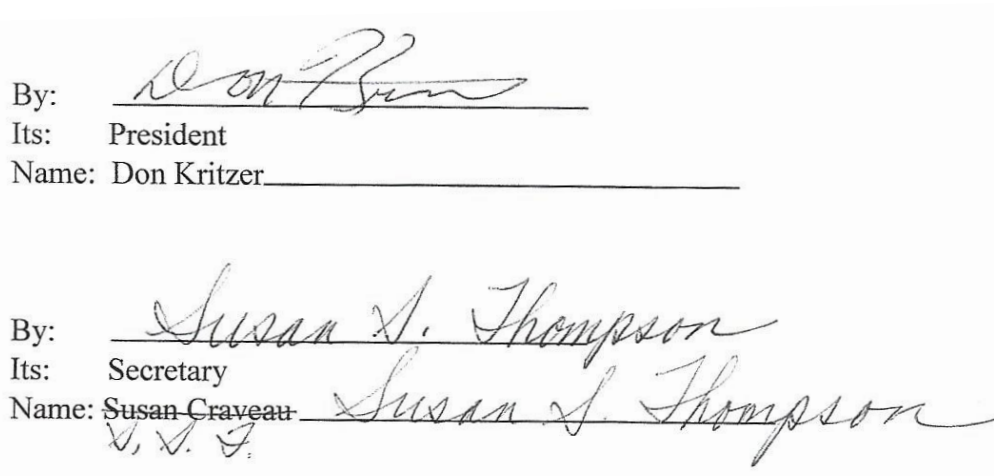 By: Don
Its: President
Name: Don Kritzer
By: Susan S. Thompson
Its: Secretary
Name: Susan Craveau Susan S. Thompson
S. S. T.